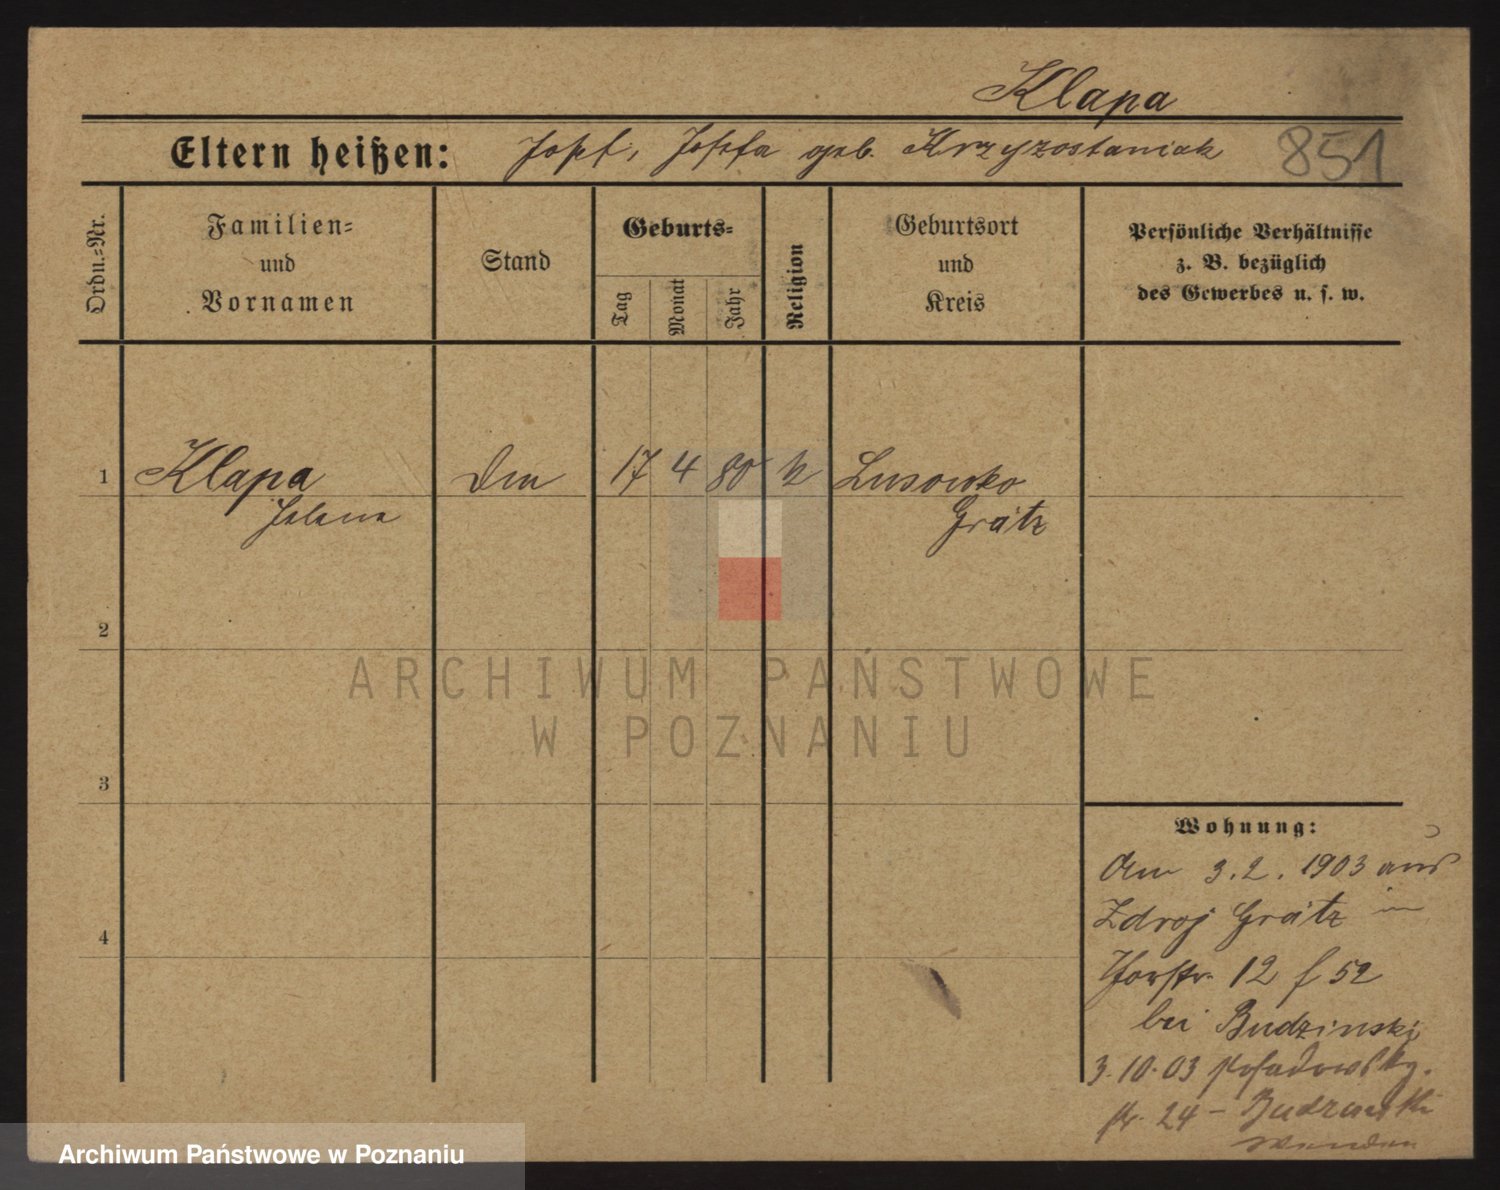 Klapa
Eltern heißen: Josef, Josefa geb. Krzyzostaniak 851
Ordn.-Nr.
Familien=
und
Vornamen
Stand
Geburts=
Tag
Monat
Jahr
Religion
Geburtsort
und
Kreis
Persönliche Verhältnisse
z. B. bezüglich
des Gewerbes u. s. w.
1 Klapa 17 4 80 k Lusowko
Grätz
2
3
4
ARCHIWUM PAŃSTWOWE
W POZNANIU
Wohnung:
Am 3.2.1903 aus
Zdroj Grätz in
12 f 52
bei Budzinski
3.10.03 Posadowsky.
str. 24 - Budzinski
wenden
Archiwum Państwowe w Poznaniu